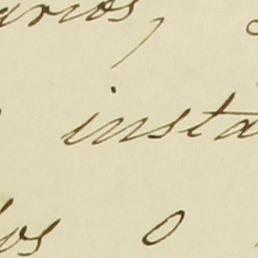 arios,
insta
los o